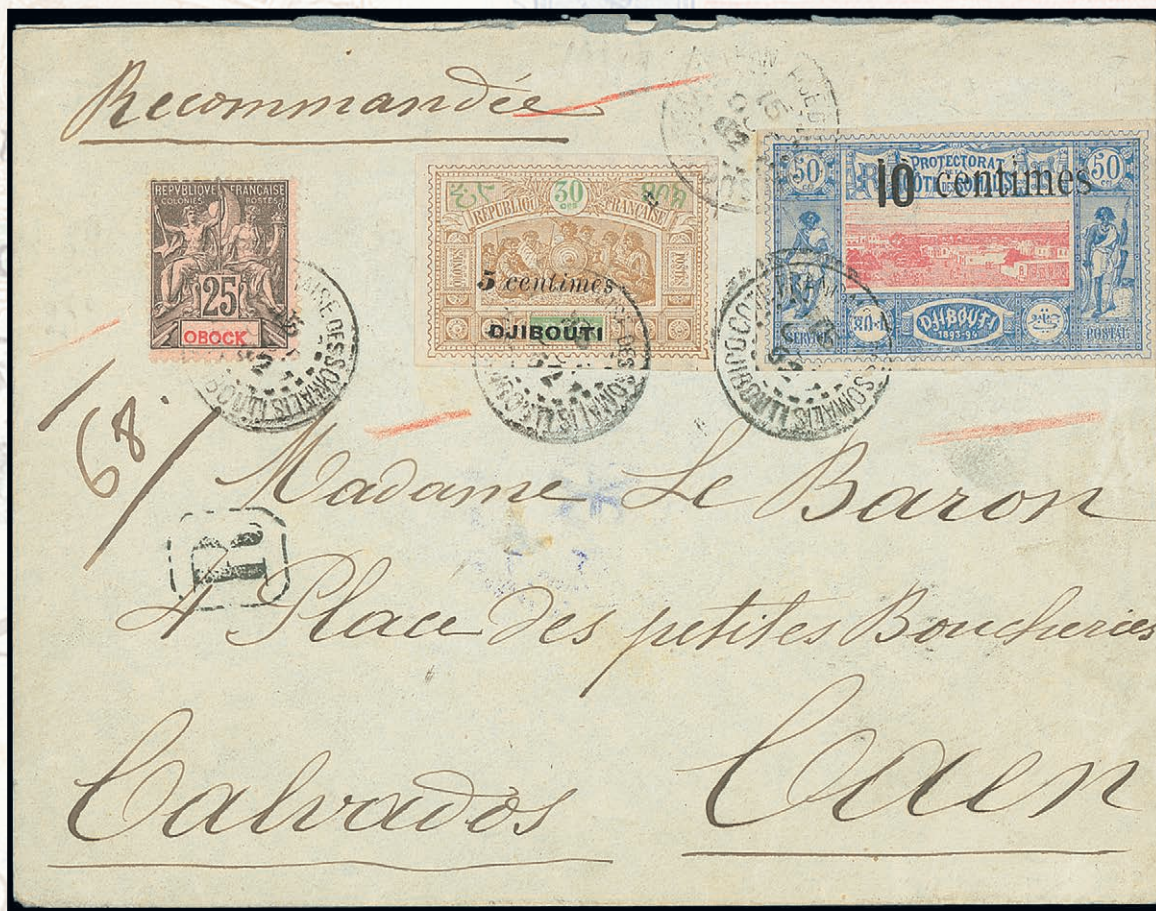 Recommandée
REPVBLIQVE FRANÇAISE
COLONIES POSTES
25
OBOCK
30
RÉPUBLIQUE FRANÇAISE
COLONIES
POSTES
5 centimes
DJIBOUTI
50
PROTECTORAT
50
10 centimes
DJIBOUTI
1893-94
POSTAL
DES SOMALIS
DES SOMALIS
SOMALIS
68
Madame Le Baron
R
4 Place des petites Boucheries
Calvados Caen